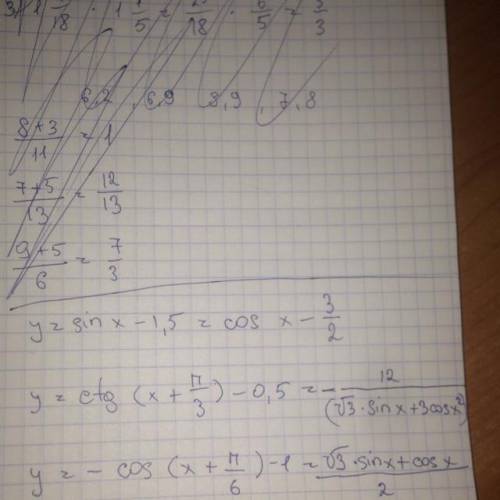 6,2 , 6,9 8,9 , 7,8
(8+3)/11 = 1
(7+5)/13 = 12/13
(9+5)/6 = 7/3
y = sin x - 1,5 = cos x - 3/2
y = ctg (x + π/3) - 0,5 = - 12/(√3 · sin x + 3cos x²)
y = - cos (x + π/6) - 1 = (√3 · sin x + cos x)/2